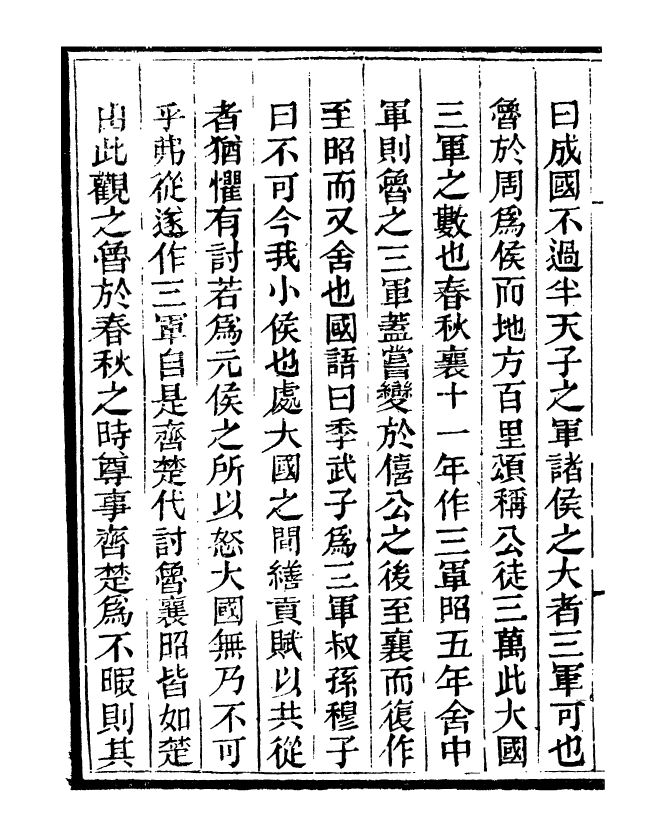 曰成國不過半天子之軍諸侯之大者三軍可也
魯於周爲侯而地方百里頌稱公徒三萬此大國
三軍之數也春秋襄十一年作三軍昭五年舍中
軍則魯之三軍蓋嘗變於僖公之後至襄而復作
至昭而又舍也國語曰季武子爲三軍叔孫穆子
曰不可今我小侯也處大國之間繕貢賦以共從
者猶懼有討若爲元侯之所以怒大國無乃不可
乎弗從遂作三軍自是齊楚代討魯襄昭皆如楚
由此觀之魯於春秋之時尊事齊楚爲不暇則其